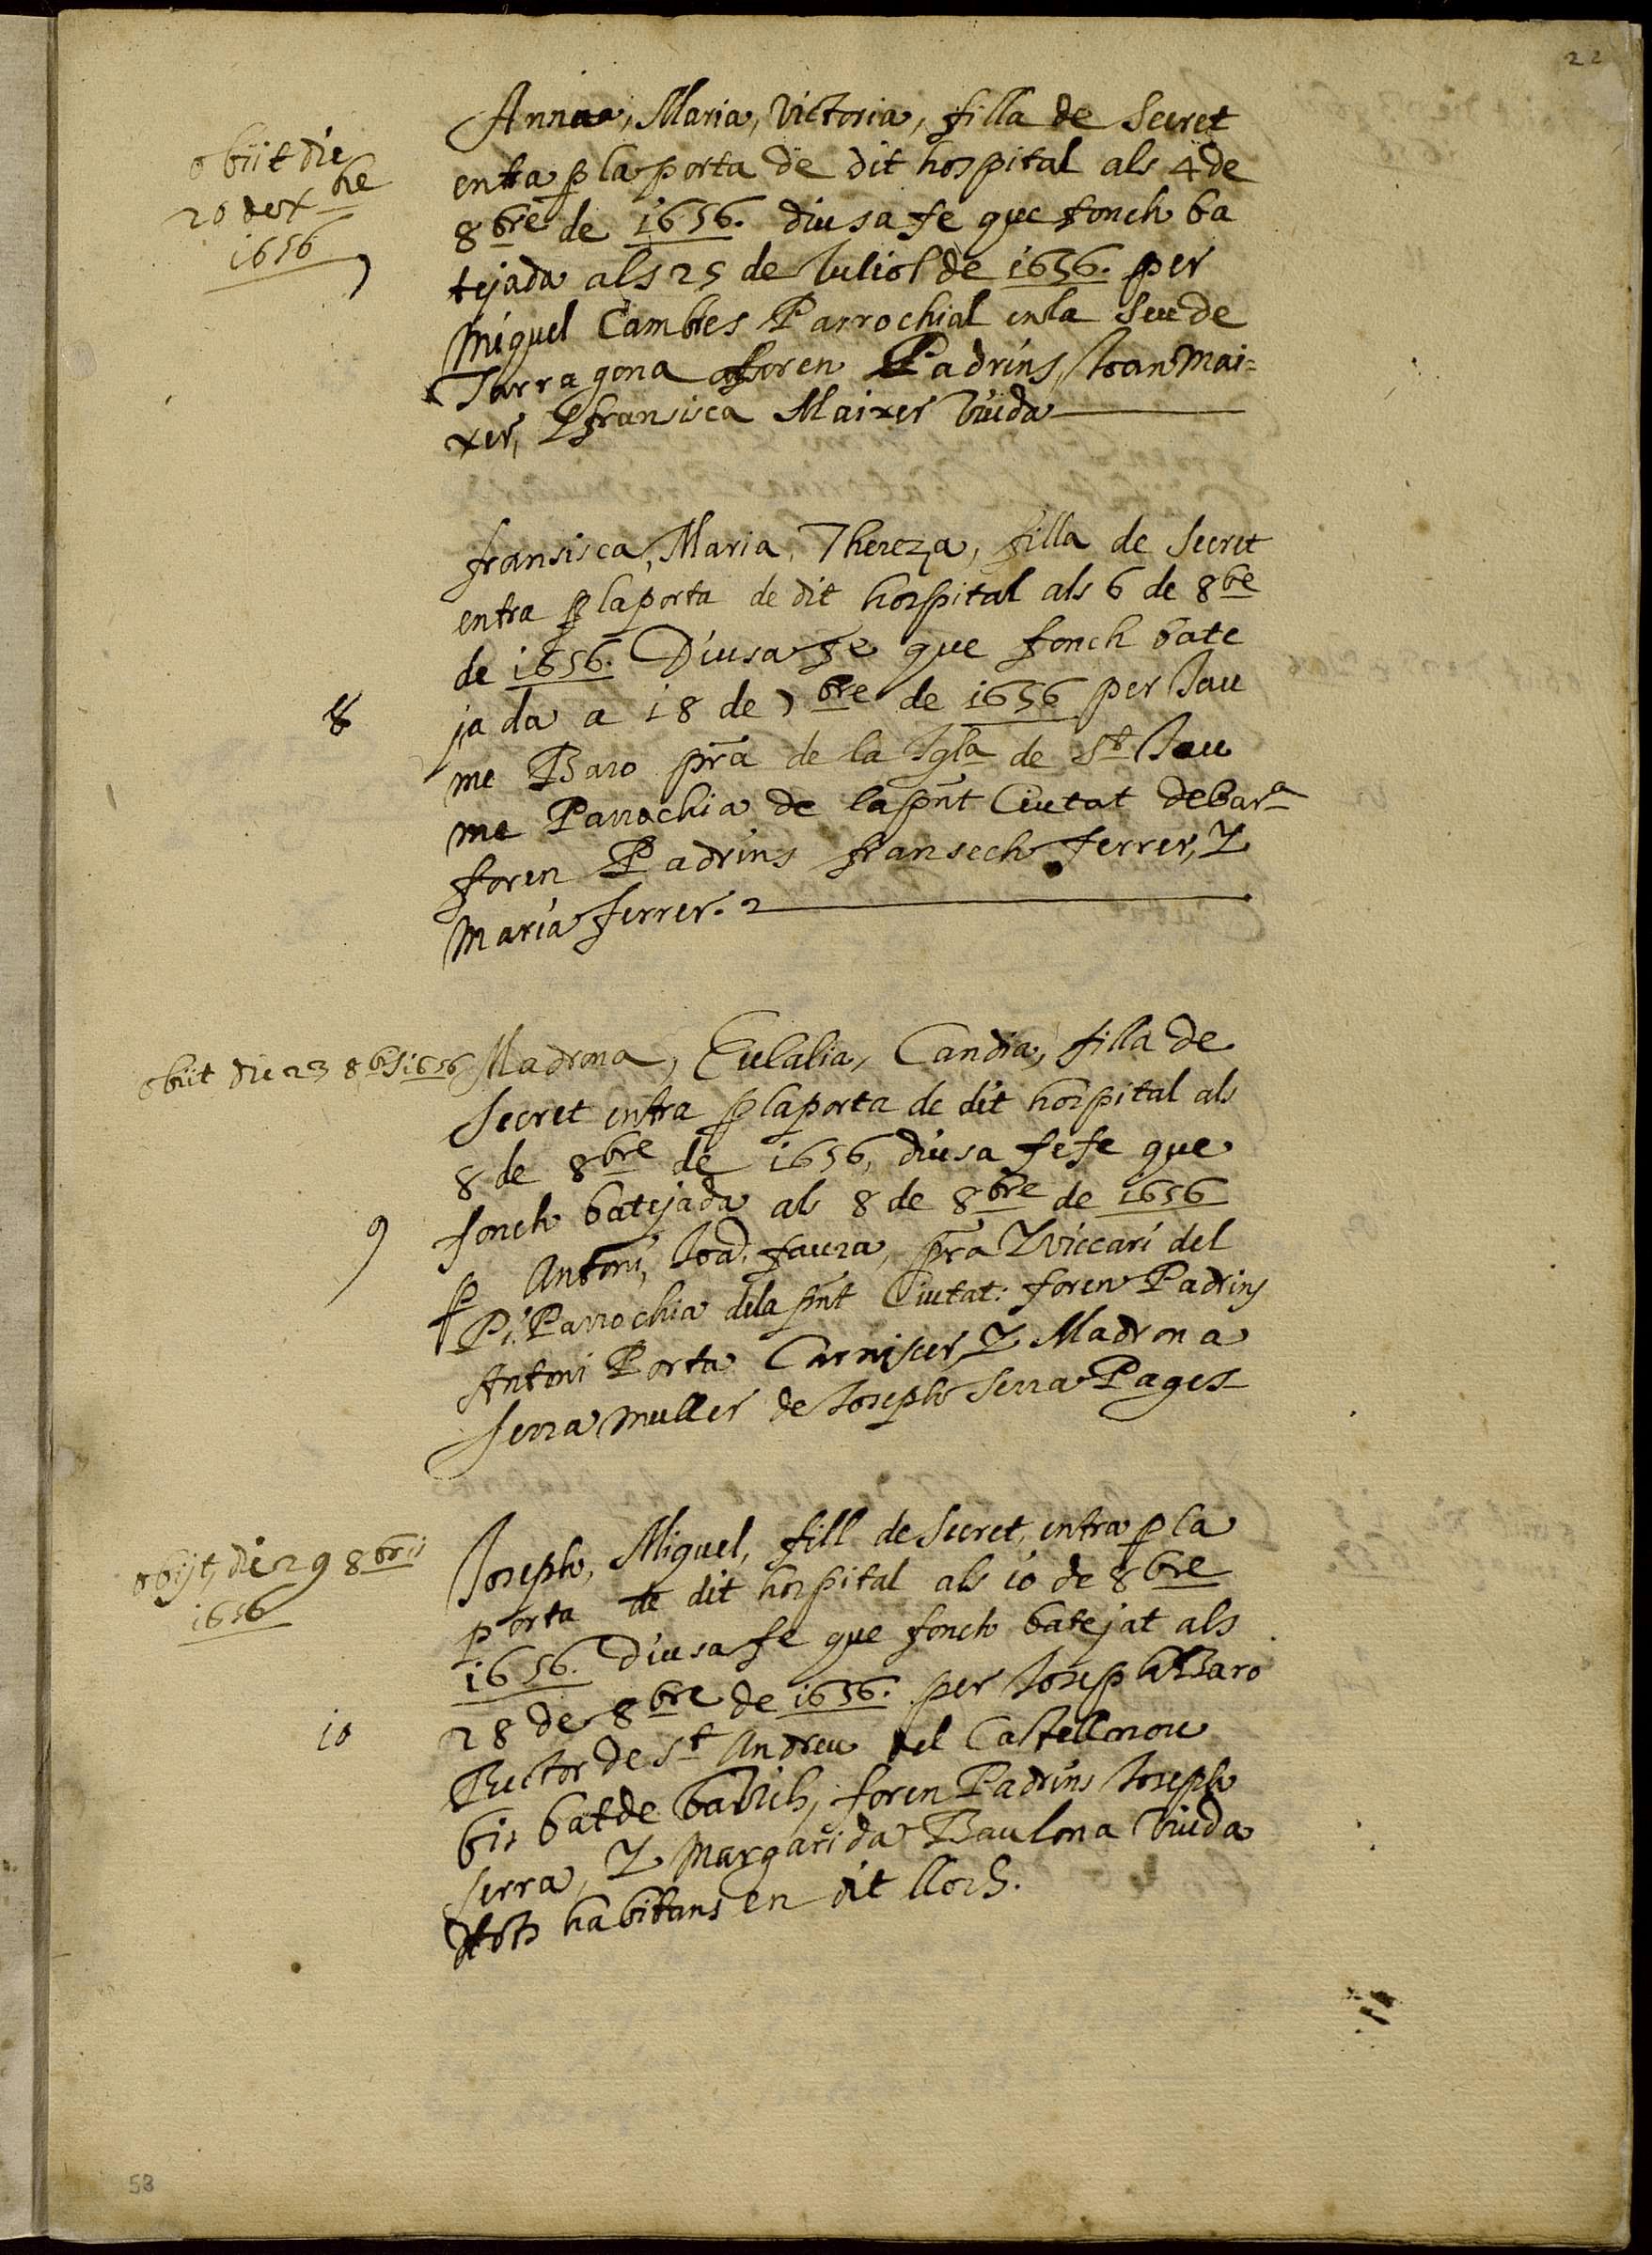 22
obiit die
20 de x bre
1656
7
Anna, Maria, Victoria, filla de Secret
entra p la porta de dit hospital als 4 de
8bre de 1656. diu sa fe que fonch ba
tejada als 25 de Juliol de 1656. per
Miquel Cambres Parrochial en la Seu de
Tarragona foren Padrins, Joan Mai=
xer, Y fransisca Maixer Viuda
fransisca, Maria, Thereza, filla de Secret
entra p la porta de dit hospital als 6 de 8be
de 1656. Diu sa fe que fonch bate
8
jada a 18 de 7bre de 1656 per Jau
me Baro pra de la Igla de St Jau
me Parrochia de la pnt Ciutat de Bara
foren Padrins fransech ferrer, Y
Maria ferrer. 2
obiit die 23 8bris 1656
Madrona, Eulalia, Candia, filla de
Secret entra p la porta de dit hospital als
8 de 8bre de 1656, diu sa fe fe que
9
fonch batejada als 8 de 8bre de 1656
p Antoni, Joa. faura, pra Y viccari del
Pi. Parrochia de la pnt Ciutat: foren Padrins
Antoni Porta Carnisser, Y Madrona
Serra muller de Joseph Serra Pages
obijt, die 29 8bris
1656
Joseph, Miquel, fill de Secret, entra p la
porta de dit hospital als 10 de 8bre
1656. Diu sa fe que fonch batejat als
10
28 de 8bre de 1656. per Joseph Baro
Rector de St Andreu del Castellnou
bis bat de Vich, foren Padrins Joseph
Serra, Y Margarida Baulona Viuda
tots habitans en dit lloch.
58